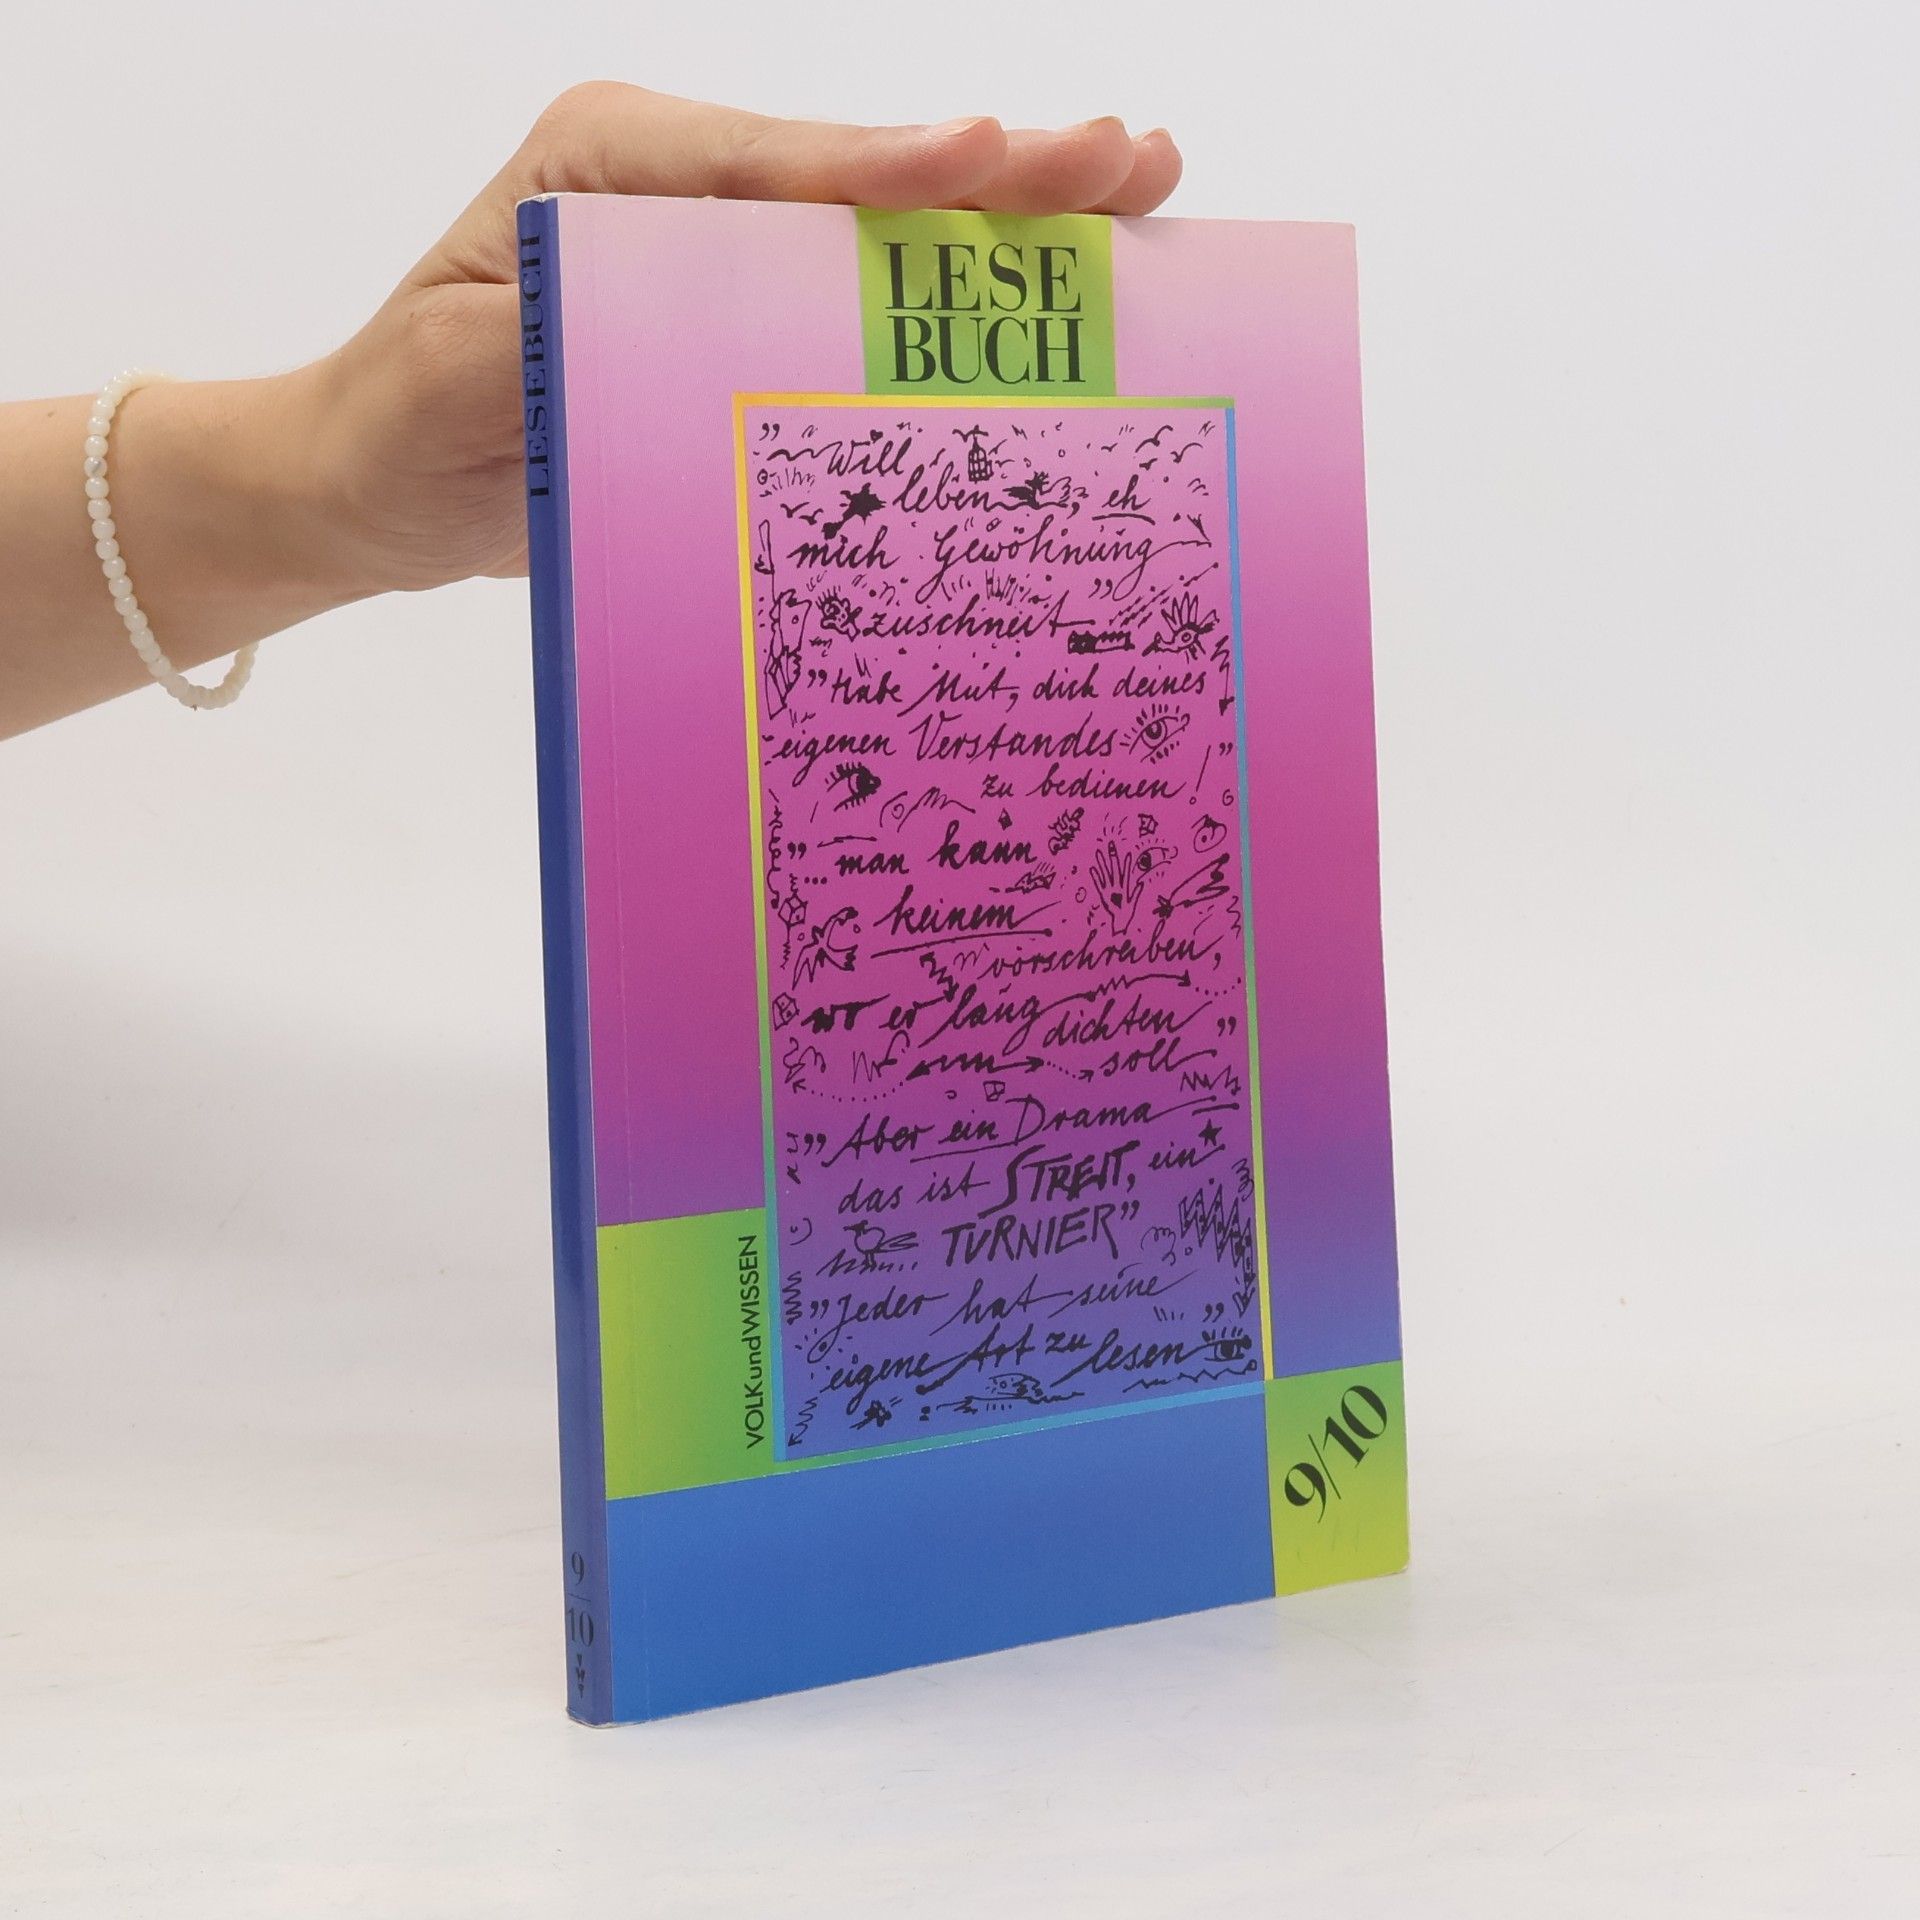 LESEBUCH
9
10
VWV
LESE
BUCH
"Will
leben, eh
mich Gewöhnung
zuschneit"
"Habe Mut, dich deines
eigenen Verstandes
zu bedienen!"
"...man kann
keinem
vorschreiben,
wo er lang
dichten
soll"
"Aber ein Drama
das ist STREIT, ein
TURNIER"
"Jeder hat seine
eigene Art zu lesen"
VOLKundWISSEN
9/10